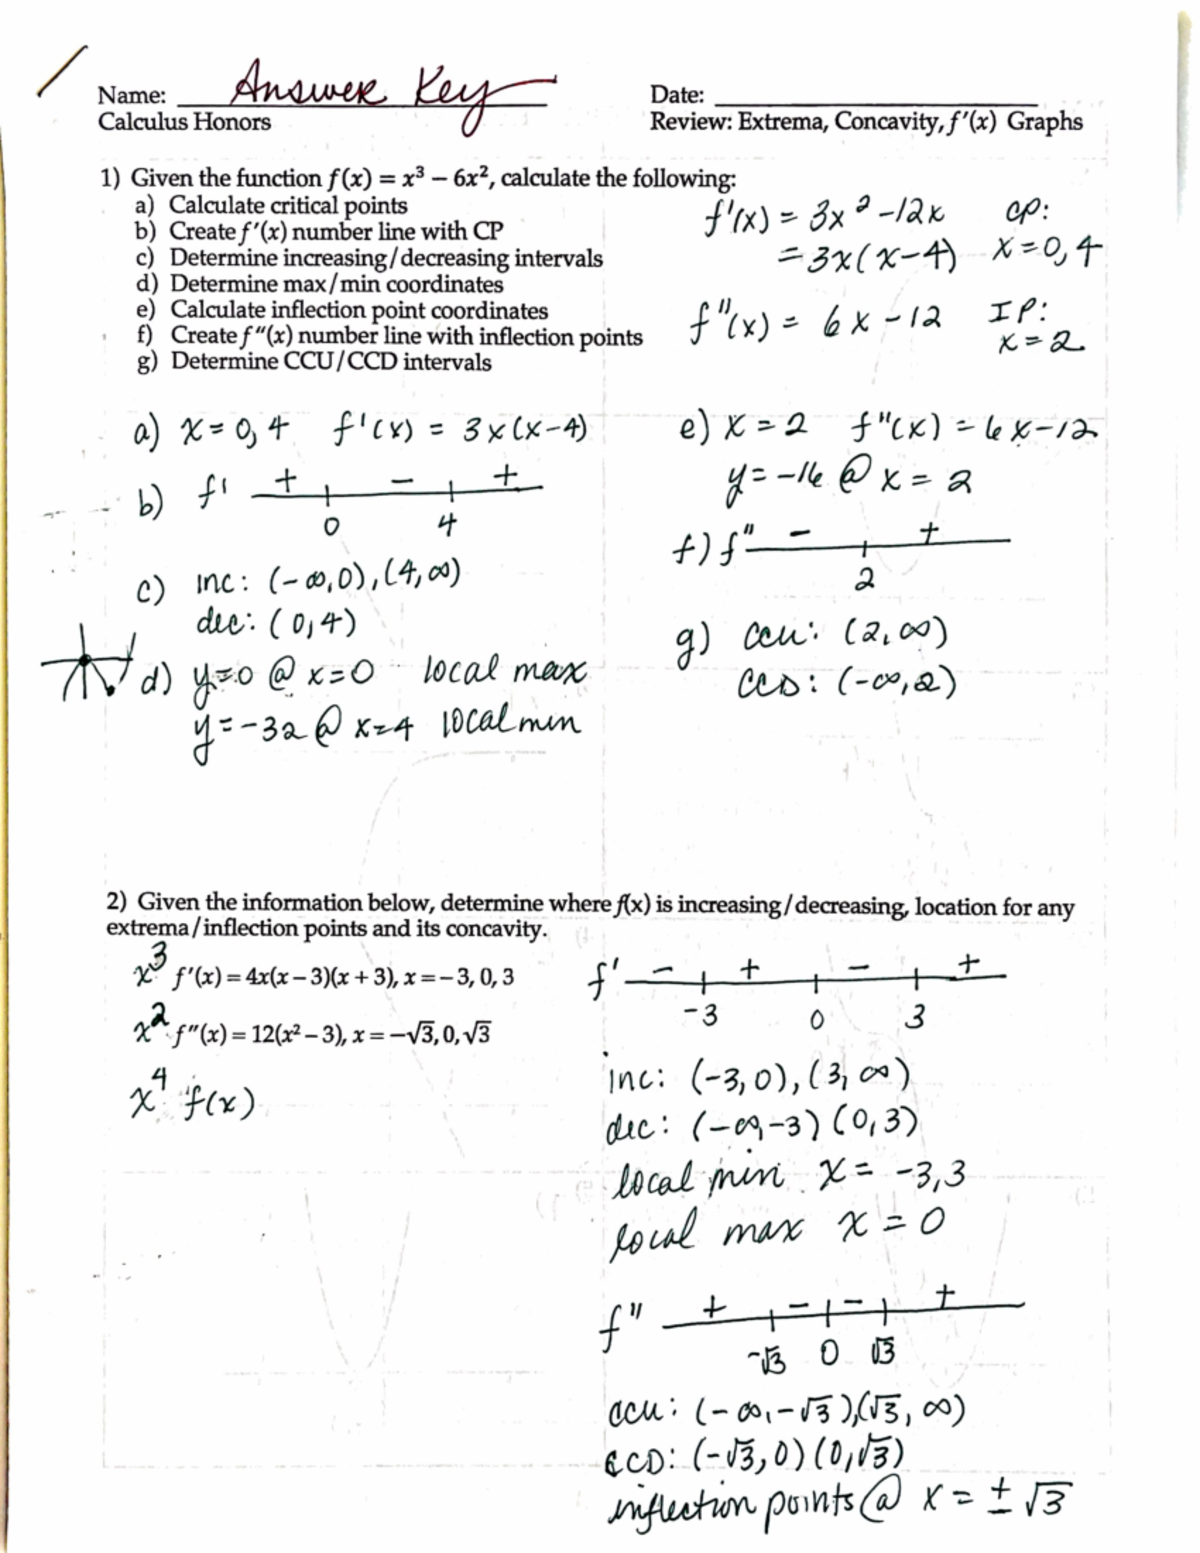 Name: Answer Key Date:
Calculus Honors Review: Extrema, Concavity, f′(x) Graphs
1) Given the function f(x) = x³ – 6x², calculate the following:
a) Calculate critical points
b) Create f′(x) number line with CP
c) Determine increasing/decreasing intervals
d) Determine max/min coordinates
e) Calculate inflection point coordinates
f) Create f″(x) number line with inflection points
g) Determine CCU/CCD intervals
f'(x) = 3x² -12x CP:
= 3x(x-4) x=0,4
f"(x) = 6x-12 IP:
x=2
a) x=0,4 f'(x) = 3x(x-4)
b) f' + - +
0 4
c) inc: (-∞,0),(4,∞)
dec: (0,4)
d) y=0 @ x=0 local max
y=-32 @ x=4 local min
e) x=2 f"(x)=6x-12
y=-16 @ x=2
f) f" - +
2
g) ccu: (2,∞)
CCD: (-∞,2)
2) Given the information below, determine where f(x) is increasing/decreasing, location for any
extrema/inflection points and its concavity.
x³ f′(x) = 4x(x – 3)(x + 3), x = – 3, 0, 3
x² f″(x) = 12(x² – 3), x = –√3, 0, √3
x⁴ f(x)
f' - + - +
-3 0 3
inc: (-3,0),(3,∞)
dec: (-∞,-3) (0,3)
local min x= -3,3
local max x=0
f" + - - +
-√3 0 √3
ccu: (-∞,-√3),(√3,∞)
CCD: (-√3,0) (0,√3)
inflection points @ x = ± √3